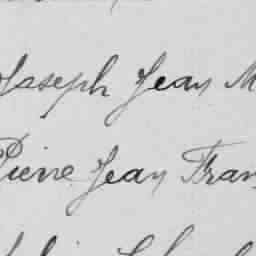 Joseph Jean M
Pierre Jean Fran